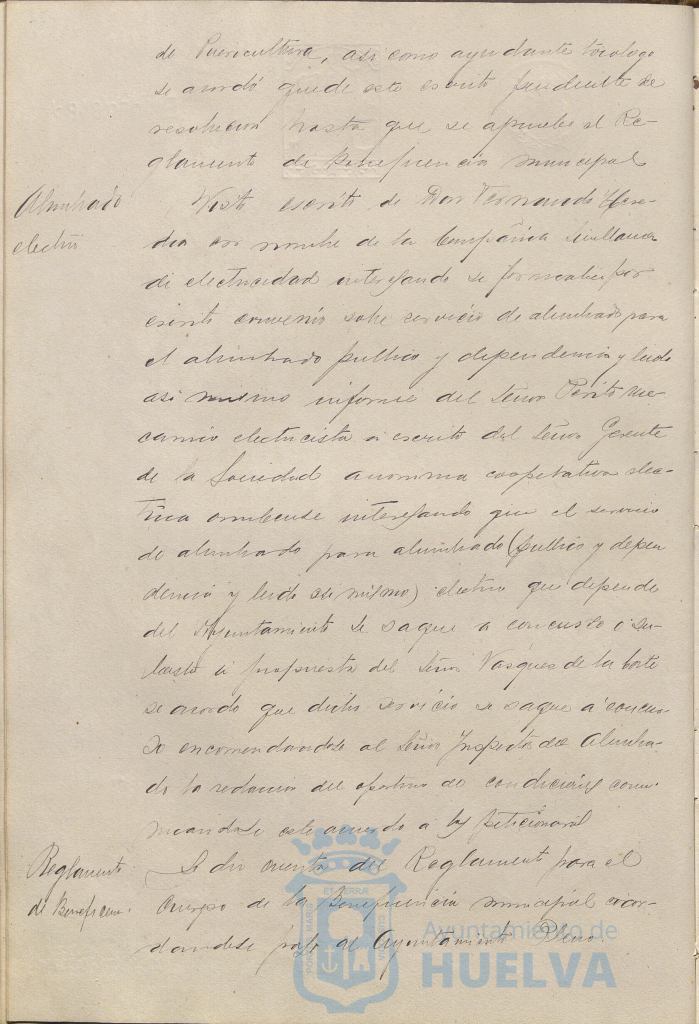 de Puericultura, asi como ayudante tocologo
se acordó quede este escrito pendiente de
resolucion hasta que se apruebe el Re-
glamento de Beneficencia municipal
Alumbrado
electrico
Visto escrito de Don Fernando Here-
dia en nombre de la Compañia Sevillana
de electricidad interesando se formalice por
escrito convenio sobre servicio de alumbrado para
el alumbrado publico y dependencia y leido
asi mismo informe del Señor Perito me-
canico electricista a escrito del Señor Gerente
de la Sociedad anonima cooperativa elec-
trica onubense interesando que el servicio
de alumbrado para alumbrado (publico y depen
dencia y leido asi mismo) electrico que depende
del Ayuntamiento se saque a concurso o su-
basta a propuesta del Señor Vasquez de la Corte
se acordo que dicho servicio se saque a concur-
so encomendandose al Señor Inspector de Alumbra-
do la redaccion del oportuno de condiciones comu-
nicandose este acuerdo a los peticionarios
Reglamento
de Beneficen.
Se dio cuenta del Reglamento para el
Cuerpo de la Beneficencia municipal acor-
dandose pase al Ayuntamiento Pleno.
Ayuntamiento de
HUELVA